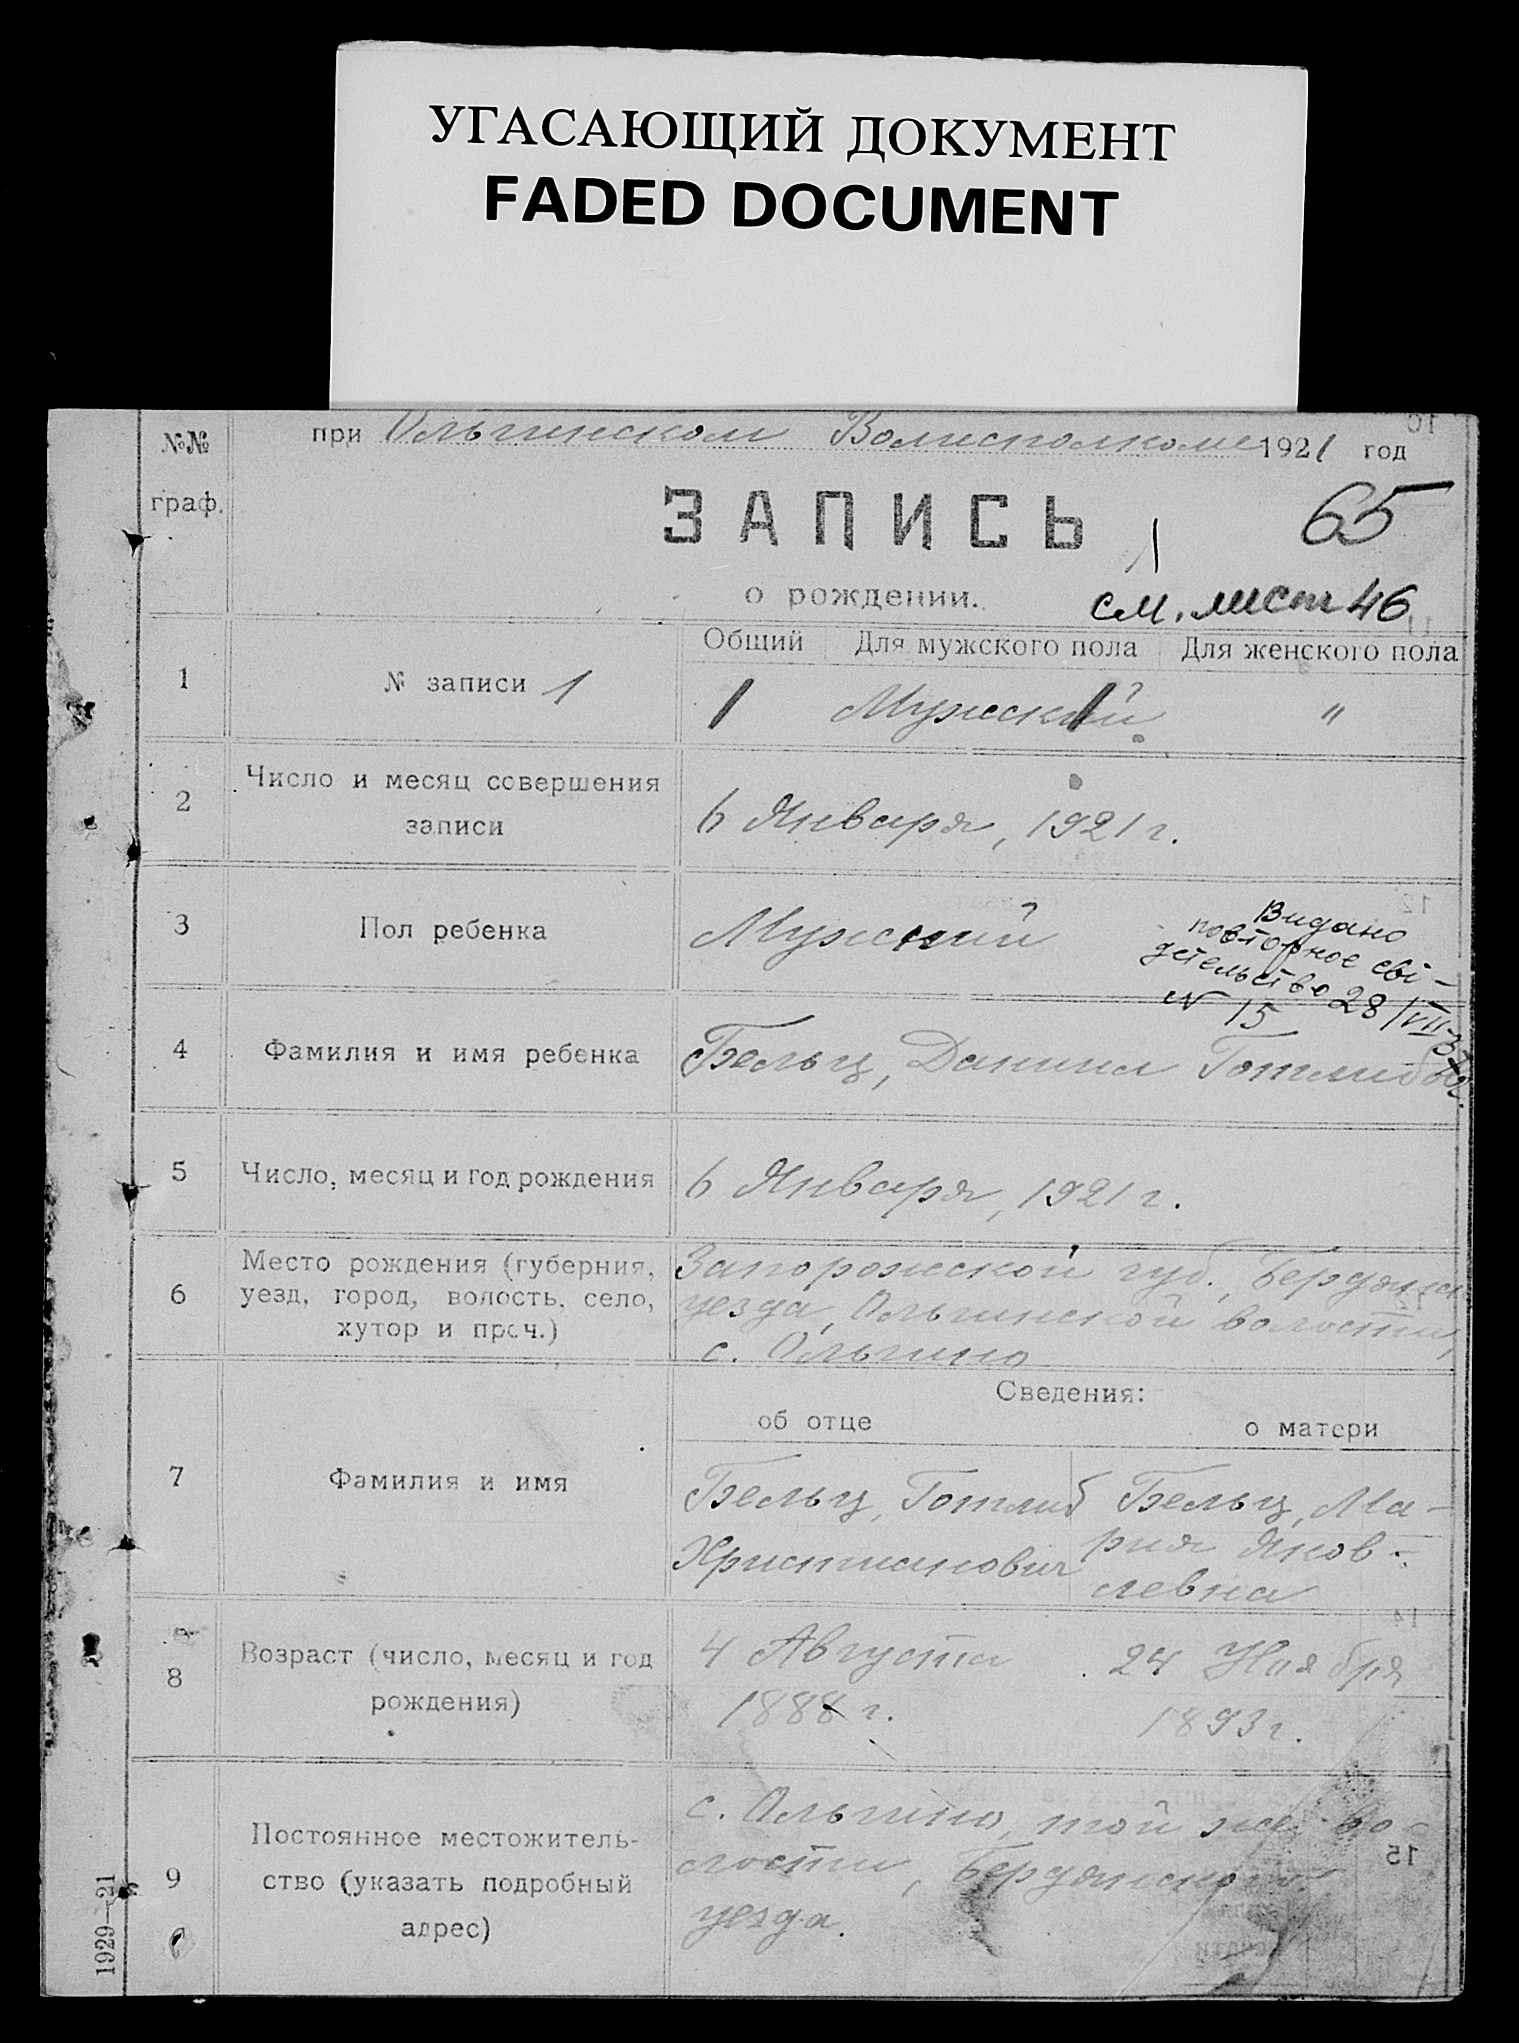 УГАСАЮЩИЙ ДОКУМЕНТ
FADED DOCUMENT
№№ граф.
при Ольгинском Волисполкоме 1921 год
ЗАПИСЬ
1
65
о рождении.
см. лист 46
Общий Для мужского пола Для женского пола
1 № записи 1 1 Мужской 1 "
2 Число и месяц совершения
записи
6 Января, 1921 г.
3 Пол ребенка Мужский
Видано
повторное сві-
детельство 28/VII-
№ 15
4 Фамилия и имя ребенка Бельц, Даниил Готлибов
5 Число, месяц и год рождения 6 Января, 1921 г.
6 Место рождения (губерния,
уезд, город, волость, село,
хутор и проч.)
Запорожской губ., Бердянск
уезда, Ольгинской волости,
с. Ольгино
Сведения:
об отце о матери
7 Фамилия и имя
Бельц, Готлиб
Христианович
Бельц, Ма-
рия Яков-
левна
8 Возраст (число, месяц и год
рождения)
4 Августа
1888 г.
24 Ноября
1893 г.
9 Постоянное местожитель-
ство (указать подробный
адрес)
с. Ольгино, той же во-
лости, Бердянского
уезда.
15
1929—21